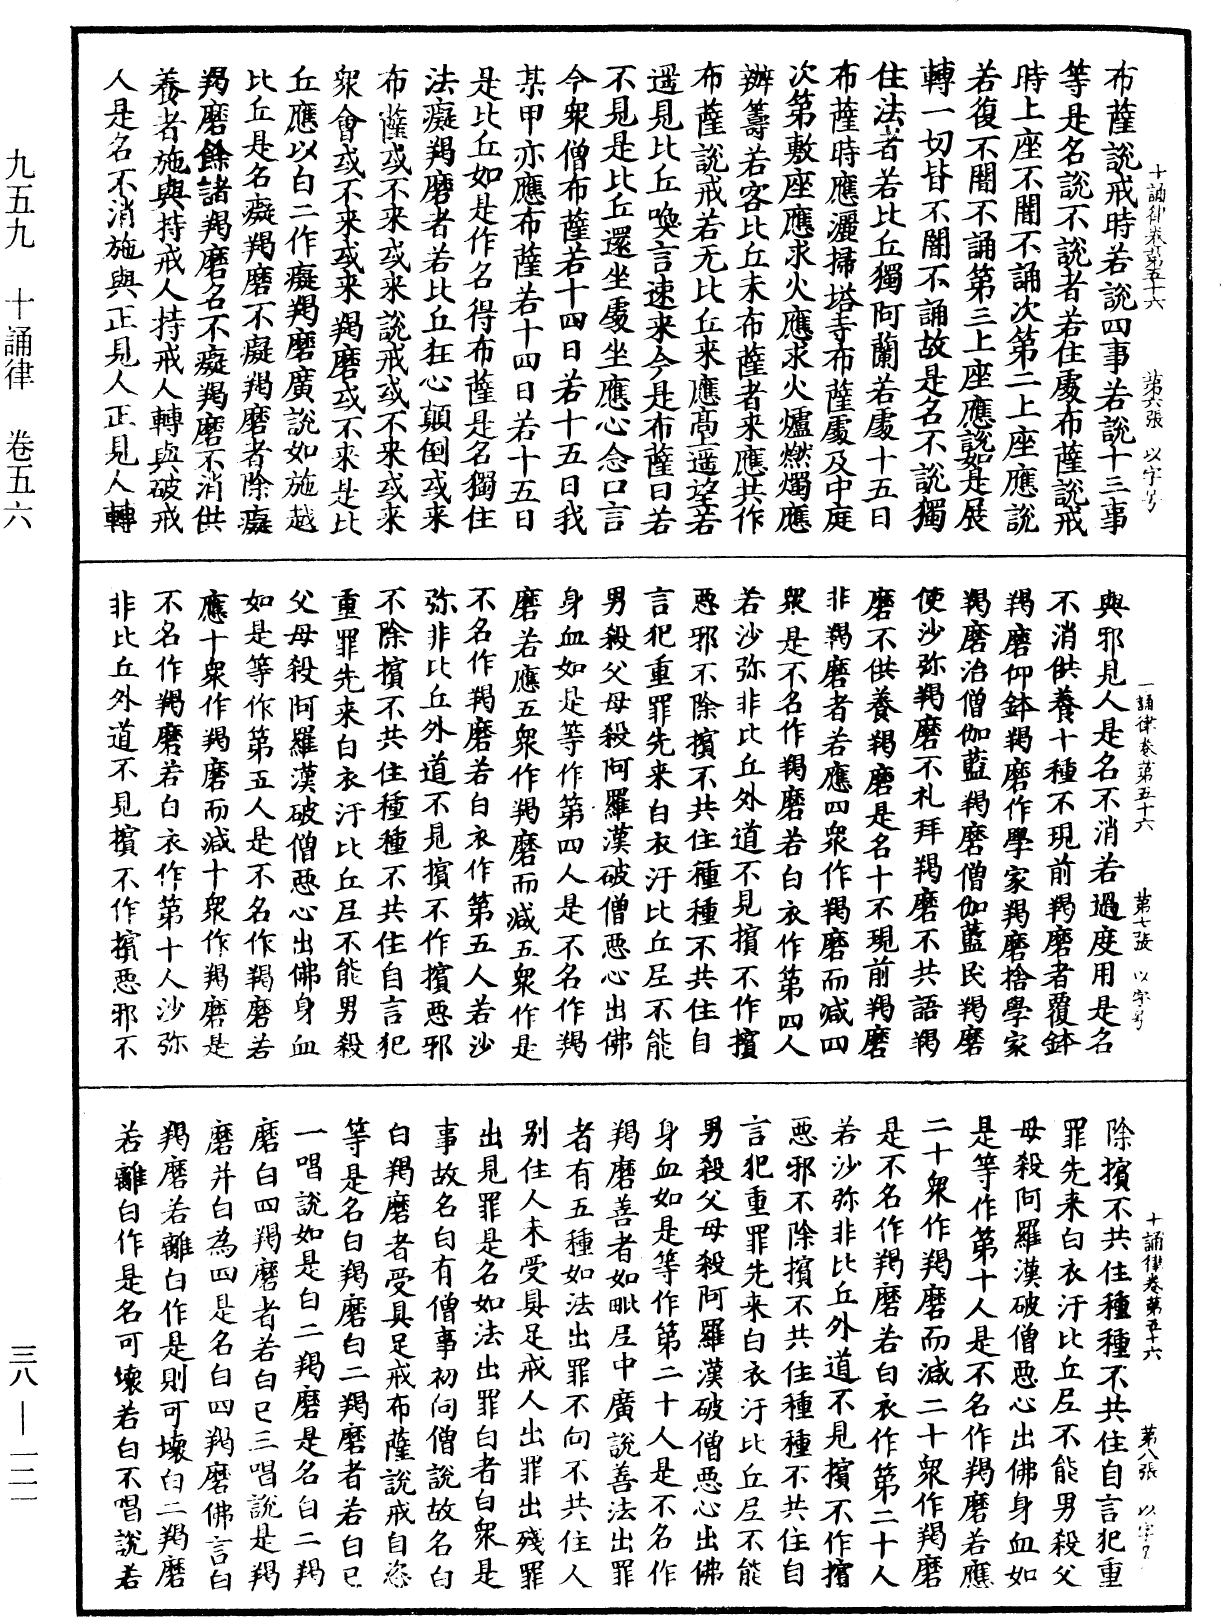 九五九　十誦律　卷五六
三八—一二一
十誦律卷第五十六　第六張　以字号
布薩說戒時若說四事若說十三事
等是名說不說者若住處布薩說戒
時上座不闇不誦次第二上座應說
若復不闇不誦第三上座應說如是展
轉一切皆不闇不誦故是名不說獨
住法者若比丘獨阿蘭若處十五日
布薩時應灑掃塔寺布薩處及中庭
次第敷座應求火應求火爐燃燭應
辦籌若客比丘未布薩者來應共作
布薩說戒若无比丘來應高上遥望若
遥見比丘喚言速来今是布薩日若
不見是比丘還坐處坐應心念口言
今衆僧布薩若十四日若十五日我
某甲亦應布薩若十四日若十五日
是比丘如是作名得布薩是名獨住
法癡羯磨者若比丘狂心顛倒或来
布薩或不来或来說戒或不来或来
衆會或不来或来羯磨或不来是比
丘應以白二作癡羯磨廣說如施越
比丘是名癡羯磨不癡羯磨者除癡
羯磨餘諸羯磨名不癡羯磨不消供
養者施與持戒人持戒人轉與破戒
人是名不消施與正見人正見人轉
一誦律卷第五十六　第七張　以字号
與邪見人是名不消若過度用是名
不消供養十種不現前羯磨者覆鉢
羯磨仰鉢羯磨作學家羯磨捨學家
羯磨治僧伽藍羯磨僧伽藍民羯磨
使沙弥羯磨不礼拜羯磨不共語羯
磨不供養羯磨是名十不現前羯磨
非羯磨者若應四衆作羯磨而減四
衆是不名作羯磨若白衣作第四人
若沙弥非比丘外道不見擯不作擯
惡邪不除擯不共住種種不共住自
言犯重罪先来白衣汙比丘尼不能
男殺父母殺阿羅漢破僧惡心出佛
身血如是等作第四人是不名作羯
磨若應五衆作羯磨而減五衆作是
不名作羯磨若白衣作第五人若沙
弥非比丘外道不見擯不作擯惡邪
不除擯不共住種種不共住自言犯
重罪先来白衣汙比丘尼不能男殺
父母殺阿羅漢破僧惡心出佛身血
如是等作第五人是不名作羯磨若
應十衆作羯磨而減十衆作羯磨是
不名作羯磨若白衣作第十人沙弥
非比丘外道不見擯不作擯惡邪不
十誦律卷第五十六　第八張　以字号
除擯不共住種種不共住自言犯重
罪先来白衣汙比丘尼不能男殺父
母殺阿羅漢破僧惡心出佛身血如
是等作第十人是不名作羯磨若應
二十衆作羯磨而減二十衆作羯磨
是不名作羯磨若白衣作第二十人
若沙弥非比丘外道不見擯不作擯
惡邪不除擯不共住種種不共住自
言犯重罪先来白衣汙比丘尼不能
男殺父母殺阿羅漢破僧惡心出佛
身血如是等作第二十人是不名作
羯磨善者如毗尼中廣說善法出罪
者有五種如法出罪不向不共住人
别住人未受具足戒人出罪出殘罪
出見罪是名如法出罪白者白衆是
事故名白有僧事初向僧說故名白
白羯磨者受具足戒布薩說戒自恣
等是名白羯磨白二羯磨者若白已
一唱說如是白二羯磨是名白二羯
磨白四羯磨者若白已三唱說是羯
磨并白為四是名白四羯磨佛言白
羯磨若離白作是則可壞白二羯磨
若離白作是名可壞若白不唱說若